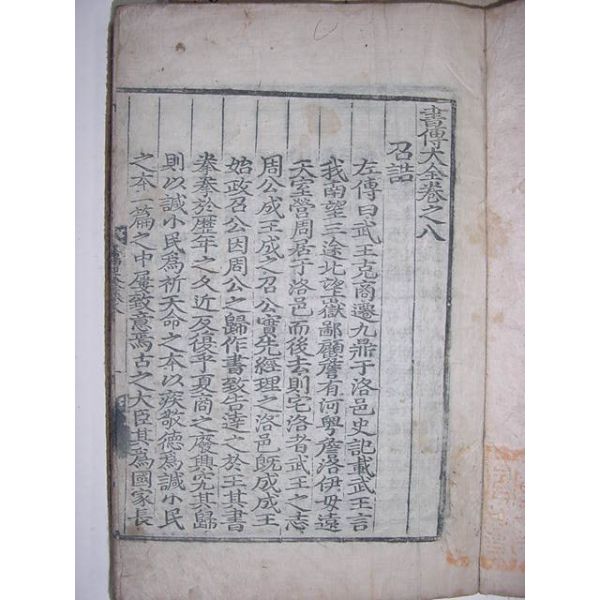 書傳大全卷之八
召誥
左傳曰武王克商遷九鼎于洛邑史記載武王言
我南望三途北望嶽鄙顧詹有河粤詹洛伊毋遠
天室營周居于洛邑而後去則宅洛者武王之志
周公成王成之召公實先經理之洛邑旣成成王
始政召公因周公之歸作書致告逹之於王其書
拳拳於歷年之久近反復乎夏商之廢興究其歸
則以諴小民爲祈天命之本以疾敬德爲諴小民
之本一篇之中屢致意焉古之大臣其爲國家長